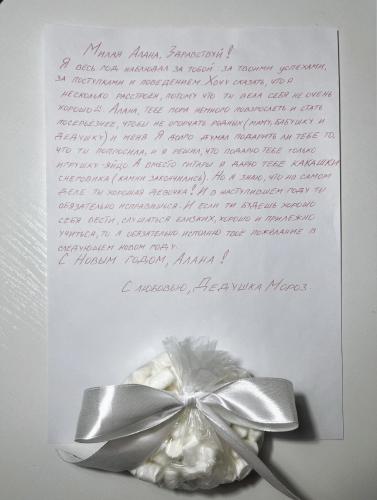 Милая Алана, Здравствуй!
Я весь год наблюдал за тобой: за твоими успехами,
за поступками и поведением. Хочу сказать, что я
несколько расстроен, потому что ты вела себя не очень
хорошо. Алана, тебе пора немного повзрослеть и стать
посерьезнее, чтобы не огорчать родных (маму, бабушку и
дедушку) и меня. Я долго думал подарить ли тебе то,
что ты попросила, и я решил, что подарю тебе только
игрушку-яйцо. А вместо гитары я дарю тебе какашки
снеговика (камни закончились). Но я знаю, что на самом
деле ты хорошая девочка! И в наступившем году ты
обязательно исправишься. И если ты будешь хорошо
себя вести, слушаться близких, хорошо и прилежно
учиться, то я обязательно исполню твоё пожелание в
следующем новом году.
С Новым годом, Алана!
С любовью, Дедушка Мороз.